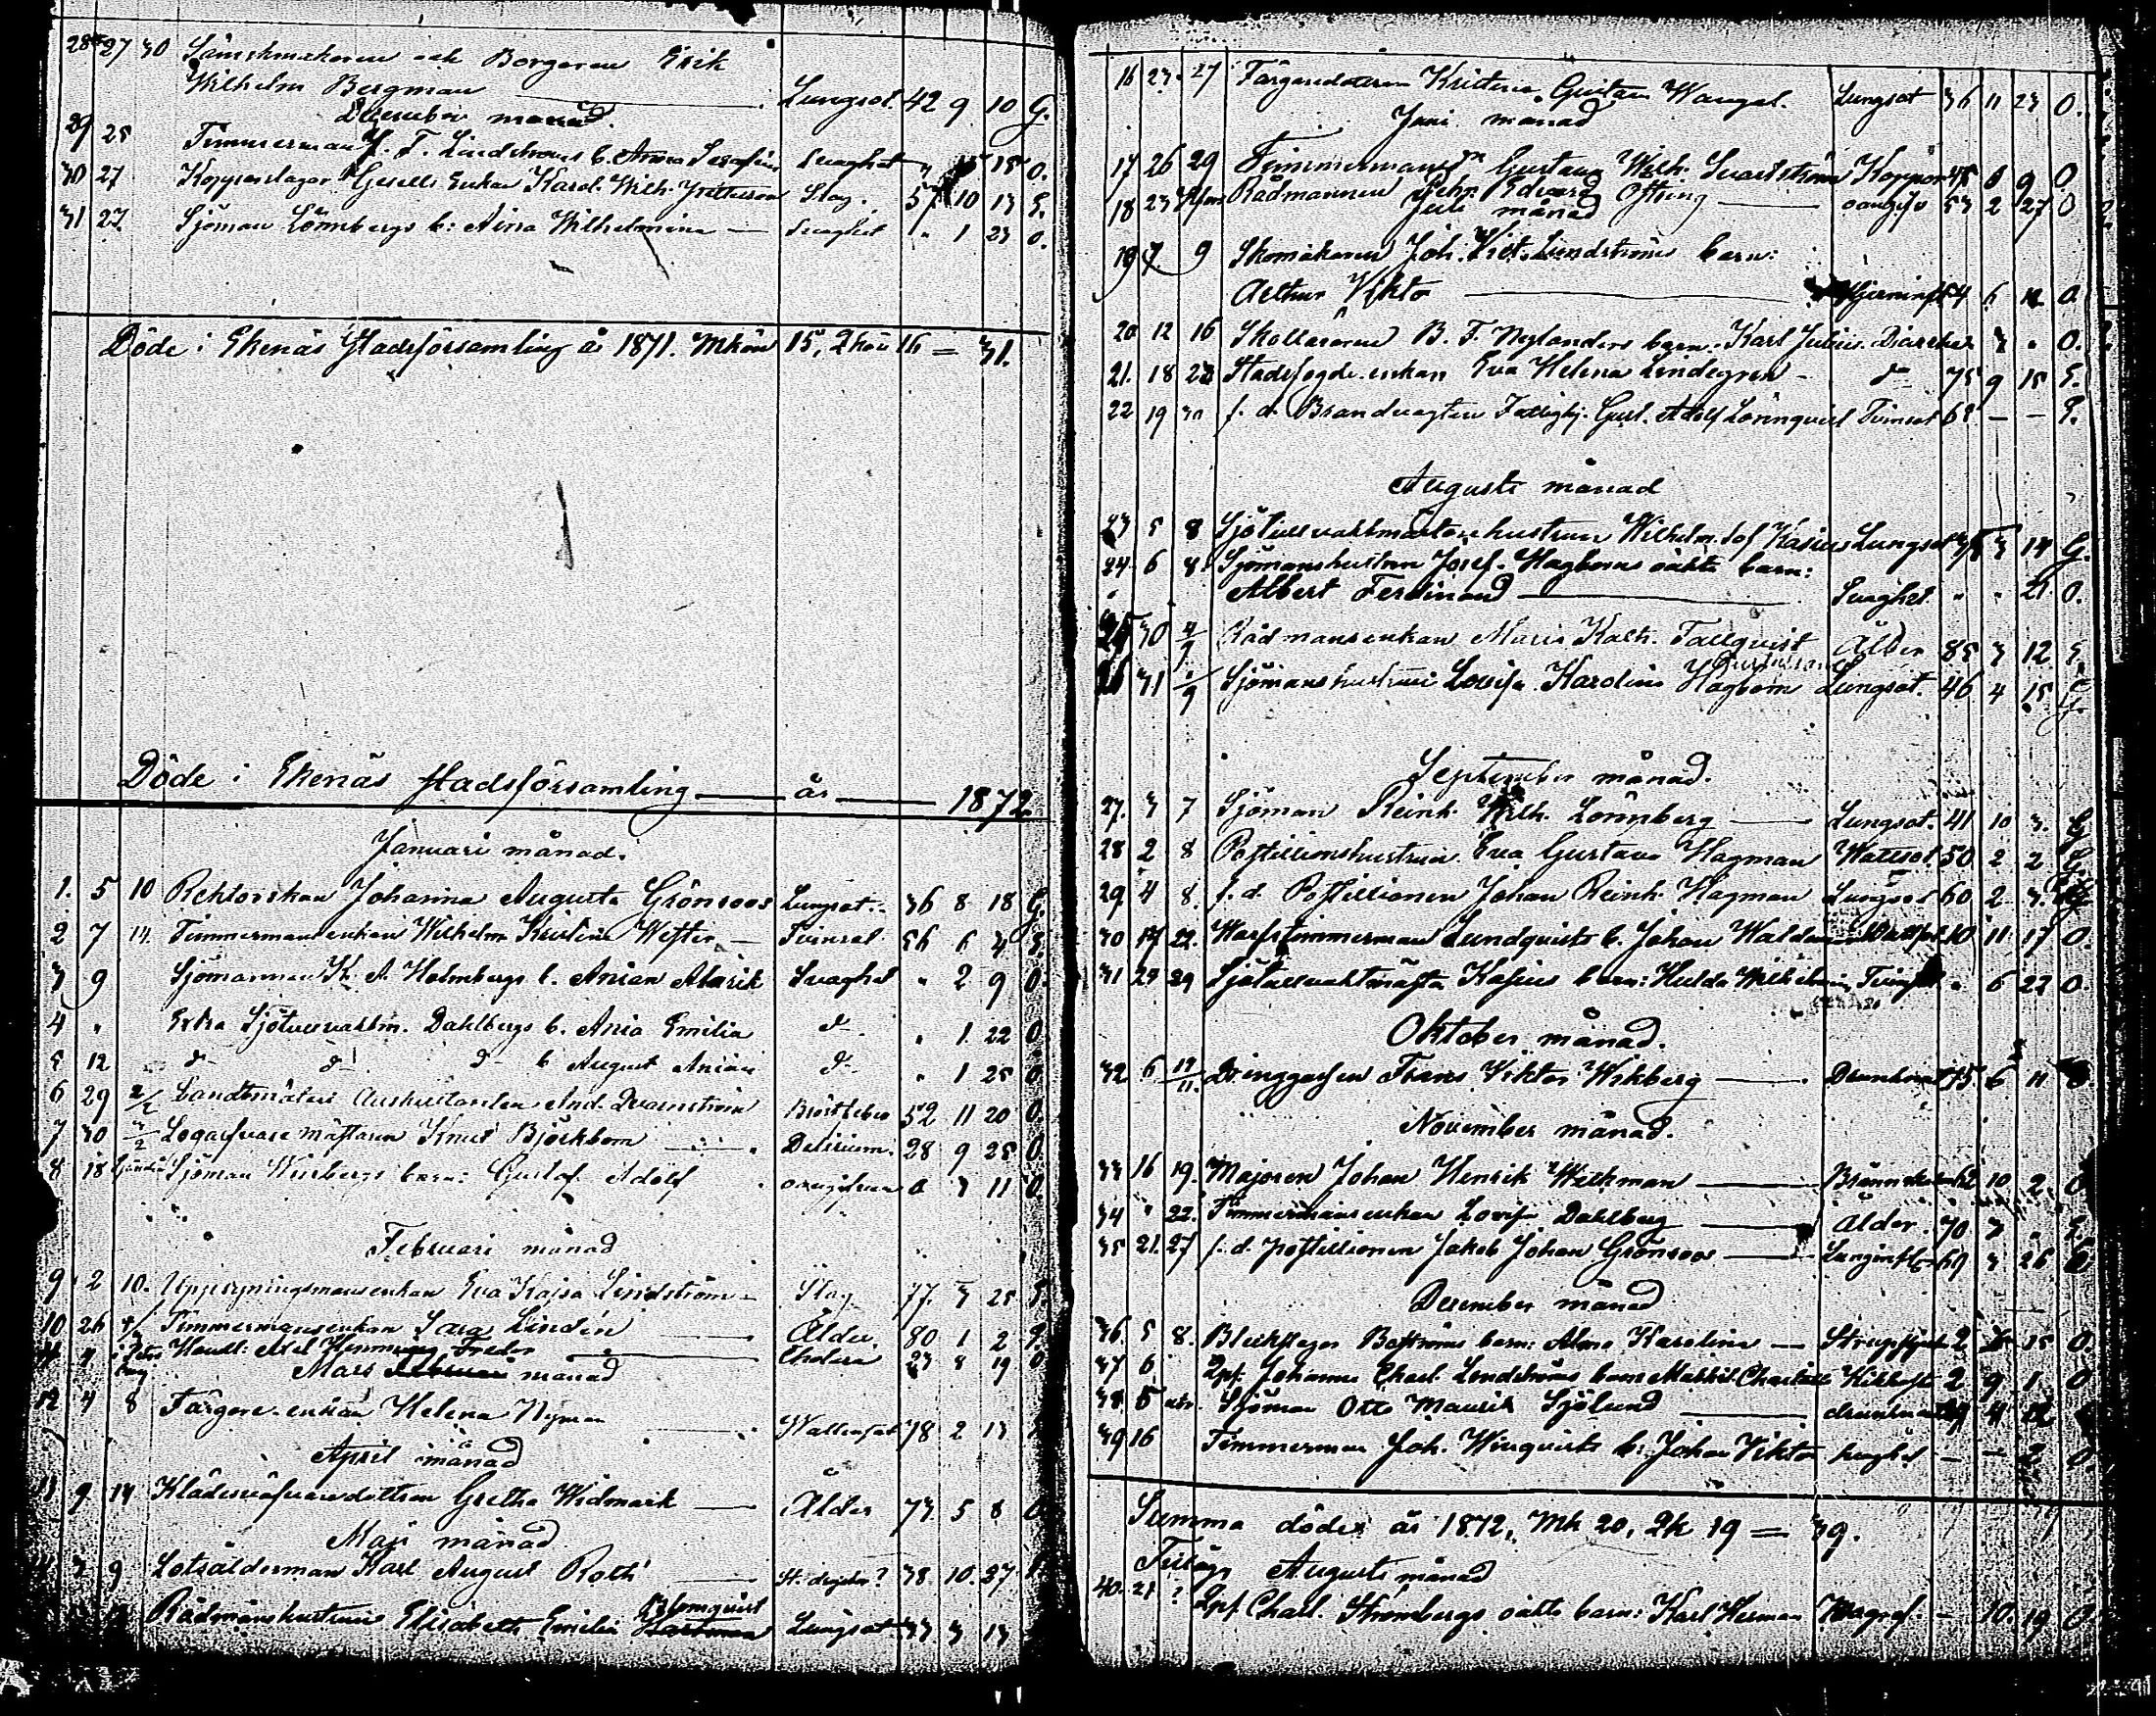 28 27 30 Sämskmakaren och Borgaren Erik
Wilhelm Bergman Lungsot 42 9 10 G.
December månad.
29 25 Timmerman F. Lindströms b. Anna Serafina Svaghet 15 O.
30 27 Kopparslagar Gesells Enkan Karol. Wilh. Slag. 57 10 13 E.
31 27 Sjöman Lönnbergs b: Aina Wilhelmina Svaghet " 1 23 O.
Döde i Ekenäs stadsförsamling år 1871. Mkön 15, Qkön 16 = 31.
Döde i Ekenäs stadsförsamling år 1872
Januari månad.
1. 5 10 Rektorskan Johanna Augusta Grönroos Lungsot. 36 8 18 G.
2 7 14. Timmermansenkan Wilhelm. Kristina Tvinsot 56 6 4 E.
3 9 Sjömannen K. A. Holmbergs b. Anian Alarik Svaghet " 2 9 O.
4 " Extra Sjötullvaktm. Dahlbergs b. Ania Emilia d " 1 22 O
5 12 d d d b August Anian d " 1 25 O
6 29 2/2 Landtmäteri Auskultanten And. Qvarnström 52 11 20 O.
7 30 3/2 mästaren Knut Björkbom Delirium. 28 9 25 O.
8 18 Sjöman barn: Gustaf Adolf 0 3 11 O.
Februari månad
9 2 10. Uppsyningsmansenkan Eva Kajsa Lindström Slag 77. 3 25 E.
10 26 Timmermansenkan Sara Lindén Ålder 80 1 2 E.
Handl: Axel Henning Cholera 23 8 19 O
Mars månad
12 4 8 Färgare-enkan Helena Nyman Wattusot 78 2 13
April månad
13 9 14 dottren Gretha Widmark Ålder 73 5 8 O
Maji månad
9 Lotsålderman Karl August Roth 38 10. 27
Blomqvist
Rådmanshustrun Elisabeth Emilia Lungsot 33 3 13
16 23. 27 Färgaredottren Kristina Gustava Lungsot 36 11 23 O.
Juni månad
17 26 29 Timmermans Gustava Wilh. Svartström Koppor 6 9 O
18 23 Rådmannen Edvard Öfting oangifv 53 2 27 O
Juli månad
19 7 9 Skomakaren Joh. Vict. Lundströms barn:
Arthur Viktor 6 O
20 12 16 Skolläraren B. F. Nylanders barn. Karl Julius. Diarrhee 3 " O.
21. 18 23 Stadsfogde-enkan Eva Helena Lindegren d 75 9 15 E.
22 19 30 f. d. Brandvagten Gust. Adolf Lönnqvist Tvinsot 68 — — E.
Augusti månad
23 5 8 Sjötullvaktmästarehustrun Wilhelm. Lungsot 3 14 G.
24 6 8. Sjömanshustrun Josef. Hagboms oäkta barn:
Albert Ferdinand Svaghet. " " 21 O.
25 30 4/9 Rådmansenkan Maria Kath. Tallqvist Ålder 85 3 12 E.
26 31 /9 Sjömanshustrun Lovisa Karolina Hagbom Lungsot. 46 4 15 G.
September månad.
27. 3 7 Sjöman Reinh. Wilh. Lönnberg Lungsot. 41 10 3. G
28 2 8 Postillionshustrun Eva Gustava Hagman Wattsot. 50 2 2 G.
29 4 8. f. d. Postillionen Johan Reinh. Hagman Lungsot 60 2 3. G
30 14 22. Warfstimmerman Lundqvists b. Johan Waldemar 10 11 17 O.
31 23 29 Sjötullvaktmästa Kasius barn: Hulda Wilhelmina " 6 22 O.
Oktober månad.
32 6 17/11. Drenggossen Frans Viktor Wikberg Drunknat 15 6 11 O.
November månad.
33 16 19. Majoren Johan Henrik Weckman 10 2. O
34 " 22. Timmermansenkan Lovisa Dahlberg Ålder. 70 3 " E.
35 21. 27 f. d. postillionen Jakob Johan Grönroos Lunginfl. 69 3 26 E
December månad
36. 5 8. Bleckslagar Boströms barn: Alma Karolina Strupsjuk 2 15 O.
37 6 Qpf. Johanna Charl. Lindströms barn Mathild Charlotta 2 9 1 O
38. 5 Sjöman Otto Maurits Sjölund drunknat 12
39 16 Timmerman Joh. Winqvists b: Johan Viktor svaghet — — 2 O.
Summa döde år 1872, Mk 20, Qk 19 = 39.
Tillägg Augusti månad
40. 21 ? Qpf. Charl. Strömbergs oäkta barn: Karl Herman — 10. 19 O.